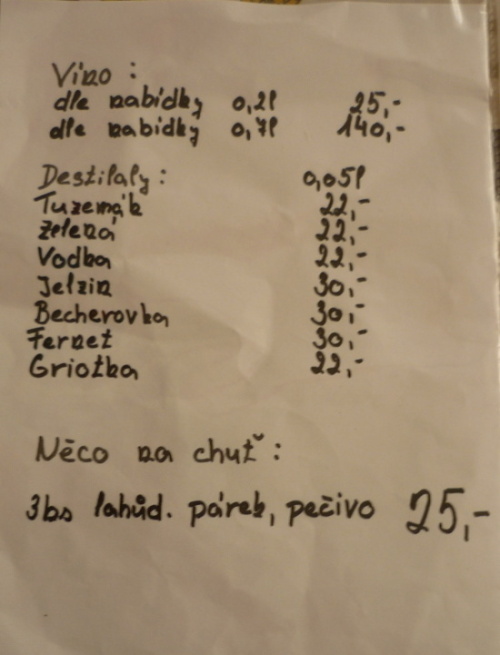 Víno :
dle nabídky 0,2l 25,-
dle nabídky 0,7l 140,-
Destiláty : 0,05l
Tuzemák 22,-
Zelená 22,-
Vodka 22,-
Jelzin 30,-
Becherovka 30,-
Fernet 30,-
Griotka 22,-
Něco na chuť :
3ks lahůd. párek, pečivo 25,-